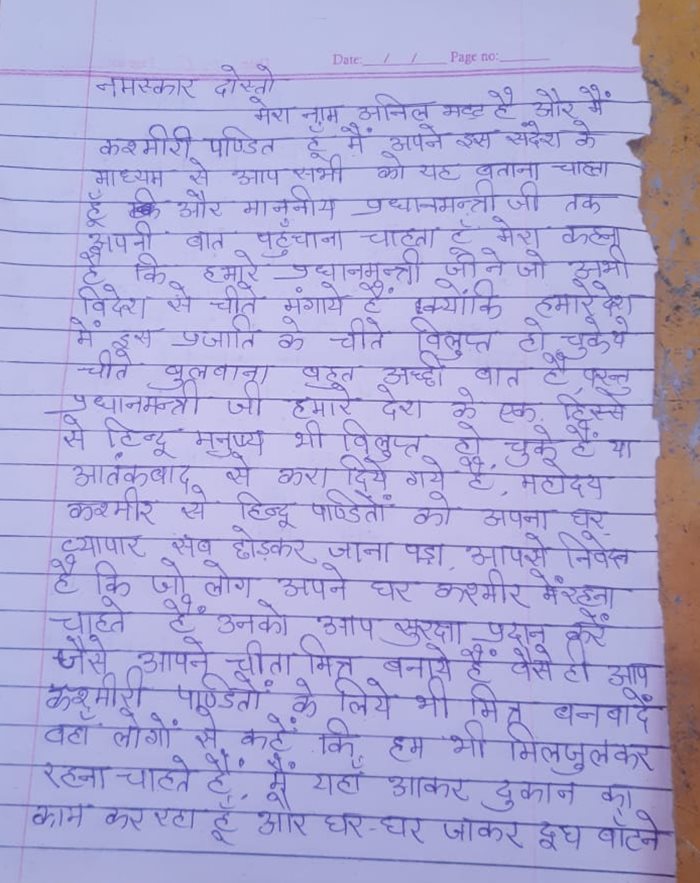 Date: __/__/__ Page no: ______
नमस्कार दोस्तो
मेरा नाम अनिल भट्ट है और मैं
कश्मीरी पण्डित हूँ मैं अपने इस संदेश के
माध्यम से आप सभी को यह बताना चाहता
हूँ कि और माननीय प्रधानमन्त्री जी तक
अपनी बात पहुँचाना चाहता हूँ मेरा कहना
है कि हमारे प्रधानमन्त्री जी ने जो अभी
विदेश से चीते मंगाये हैं क्योंकि हमारे देश
में इस प्रजाति के चीते विलुप्त हो चुके थे
चीते बुलवाना बहुत अच्छी बात है परन्तु
प्रधानमन्त्री जी हमारे देश के एक हिस्से
से हिन्दू मनुष्य भी विलुप्त हो चुके हैं या
आतंकवाद से करा दिये गये है, महोदय
कश्मीर से हिन्दू पण्डितों को अपना घर,
व्यापार सब छोड़कर जाना पड़ा, आपसे निवेदन
है कि जो लोग अपने घर कश्मीर में रहना
चाहते हैं उनको आप सुरक्षा प्रदान करें
जैसे आपने चीता मित्र बनाये हैं वैसे ही आप
कश्मीरी पण्डितों के लिये भी मित्र बनवादें
वहाँ लोगों से कहें कि हम भी मिलजुलकर
रहना चाहते हैं, मैं यहाँ आकर दुकान का
काम कर रहा हूँ और घर-घर जाकर दूध बाँटने